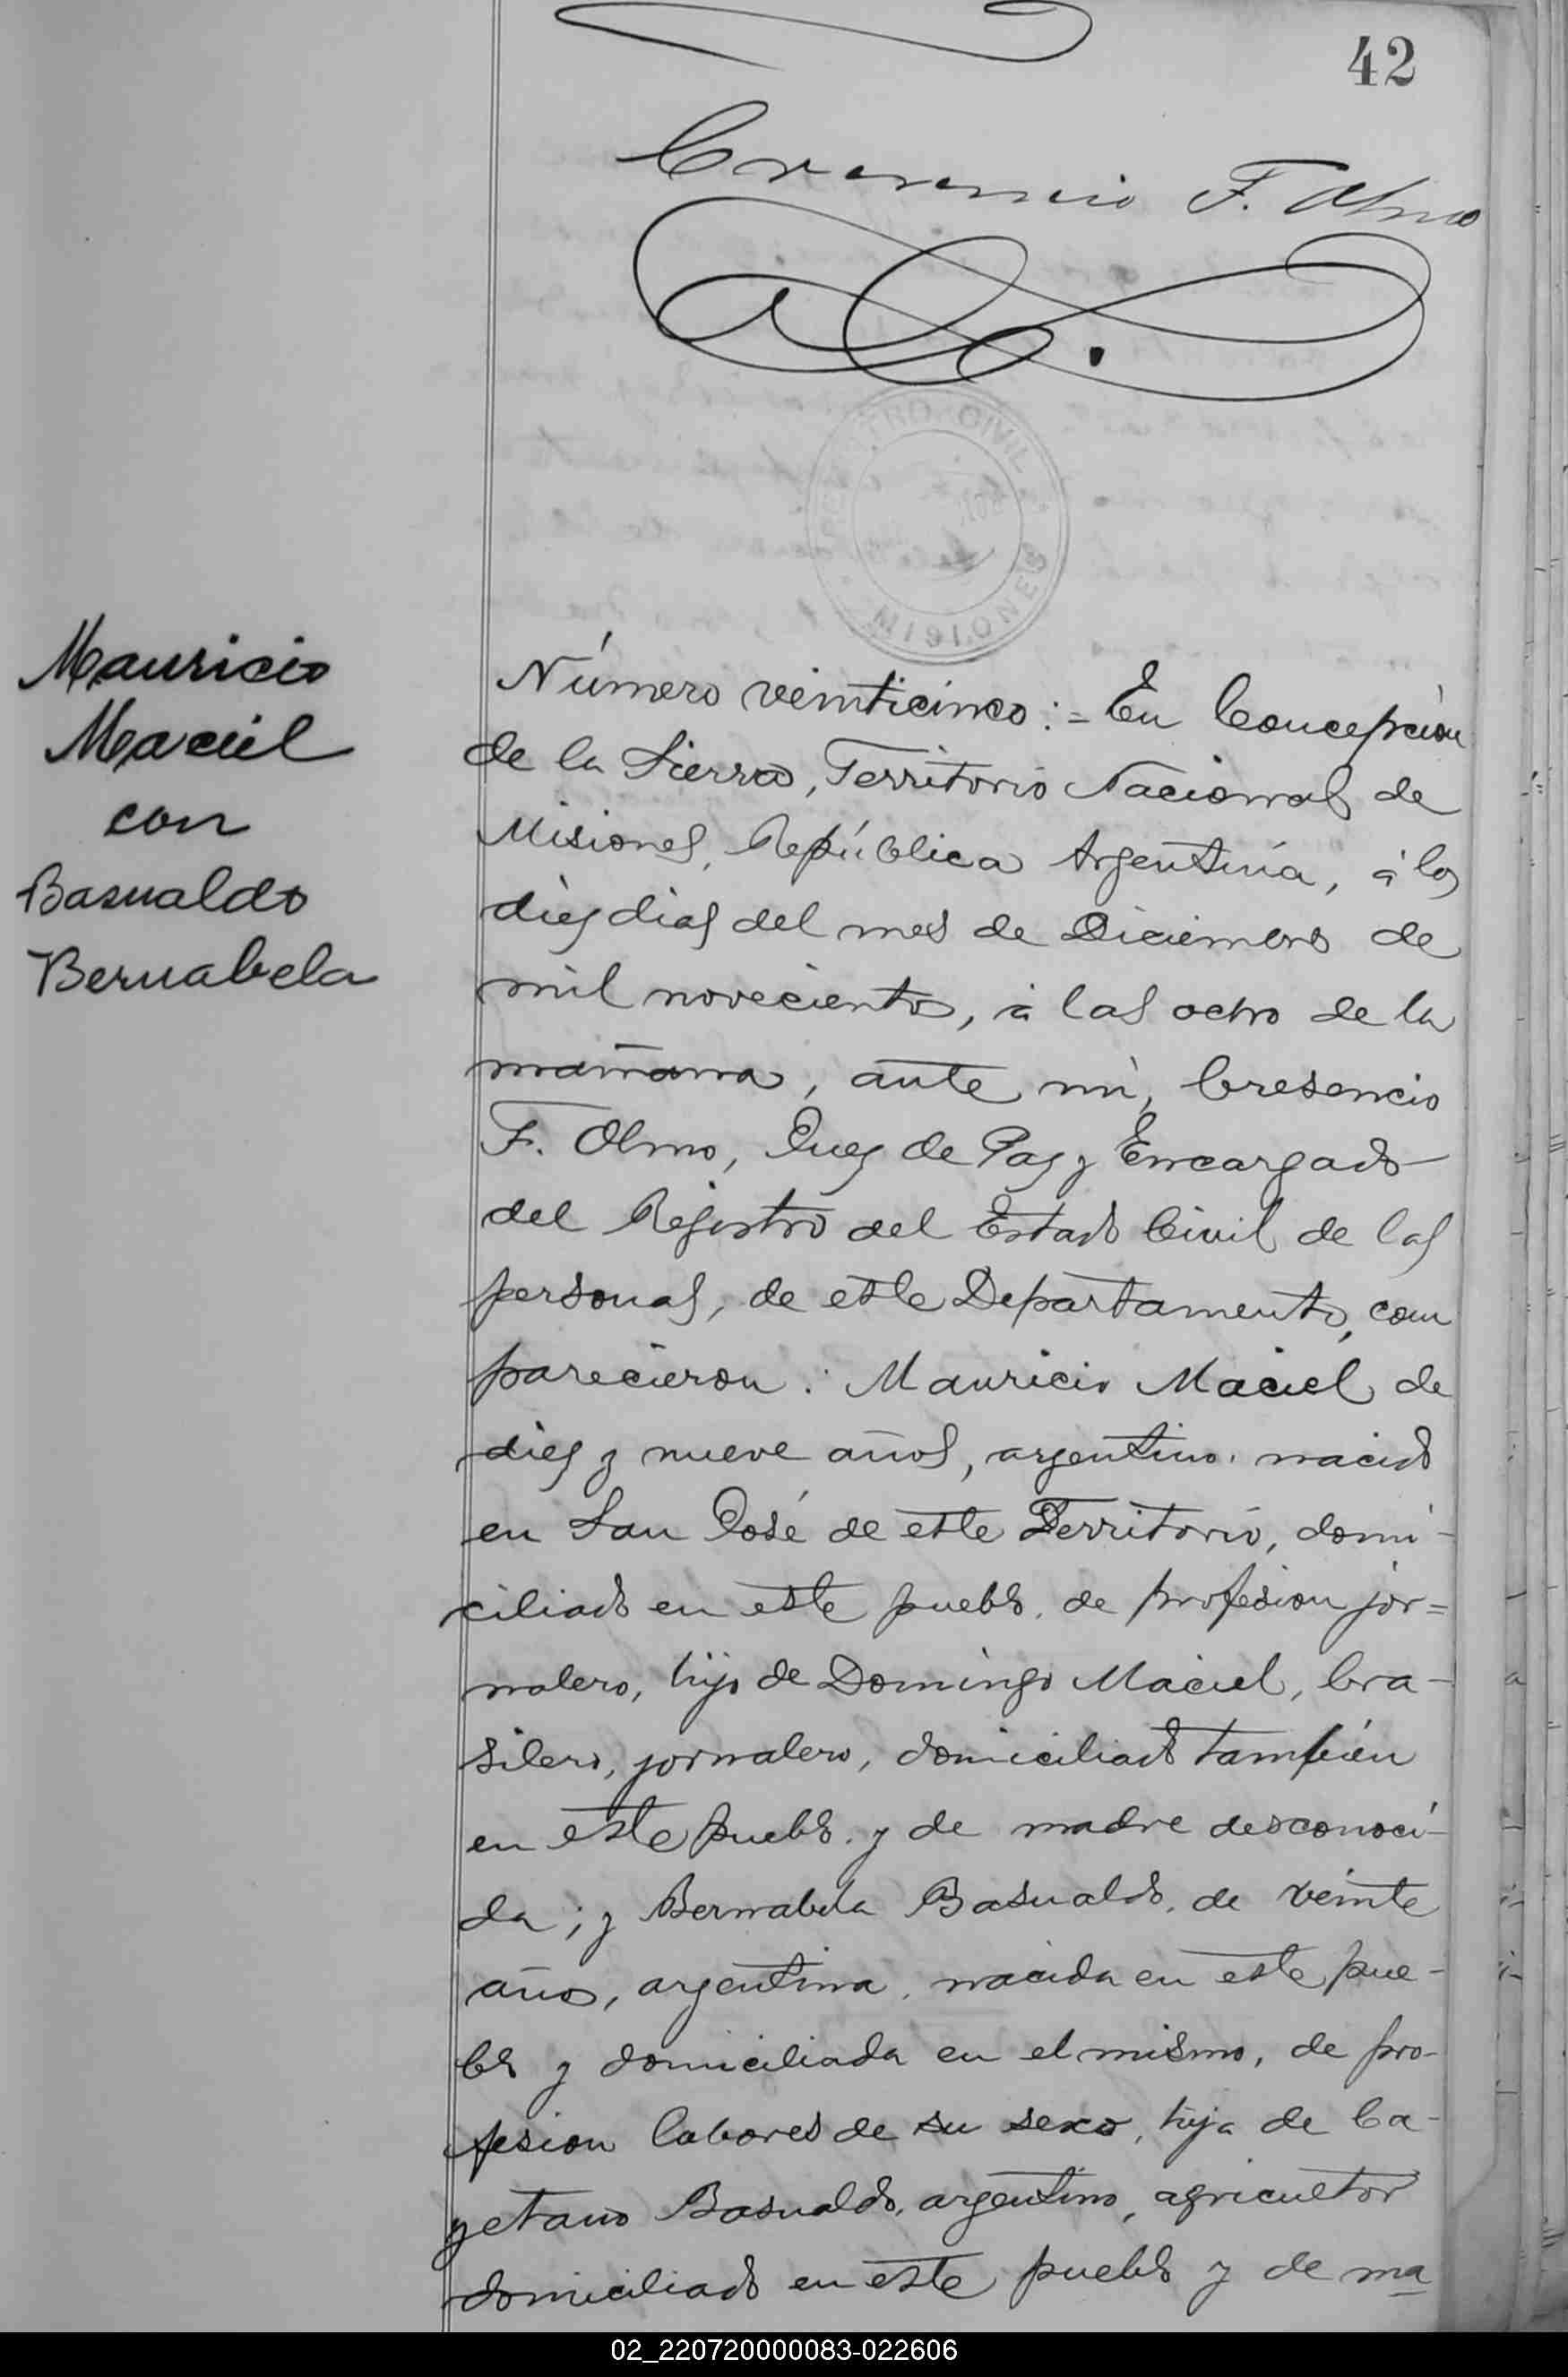 42
Cresencio F. Olmo
REGISTRO CIVIL
MISIONES
Mauricio
Maciel
con
Basualdo
Bernabela
Número veinticinco:= En Concepción
de la Sierra, Territorio Nacional de
Misiones, República Argentina, á los
diez dias del mes de Diciembre de
mil novecientos, á las ocho de la
mañana, ante mi, Cresencio
F. Olmo, Juez de Paz y Encargado
del Registro del Estado Civil de las
personas, de este Departamento, com
parecieron: Mauricio Maciel de
diez y nueve años, argentino, nacido
en San José de este Territorio, domi-
ciliado en este pueblo, de profesion jor=
nalero, hijo de Domingo Maciel, bra-
silero, jornalero, domiciliado también
en este pueblo, y de madre desconoci-
da; y Bernabela Basualdo, de veinte
años, argentina, nacida en este pue-
blo y domiciliada en el mismo, de pro-
fesion labores de su sexo, hija de Ca-
yetano Basualdo, argentino, agricultor
domiciliado en este pueblo y de ma
02_220720000083-022606